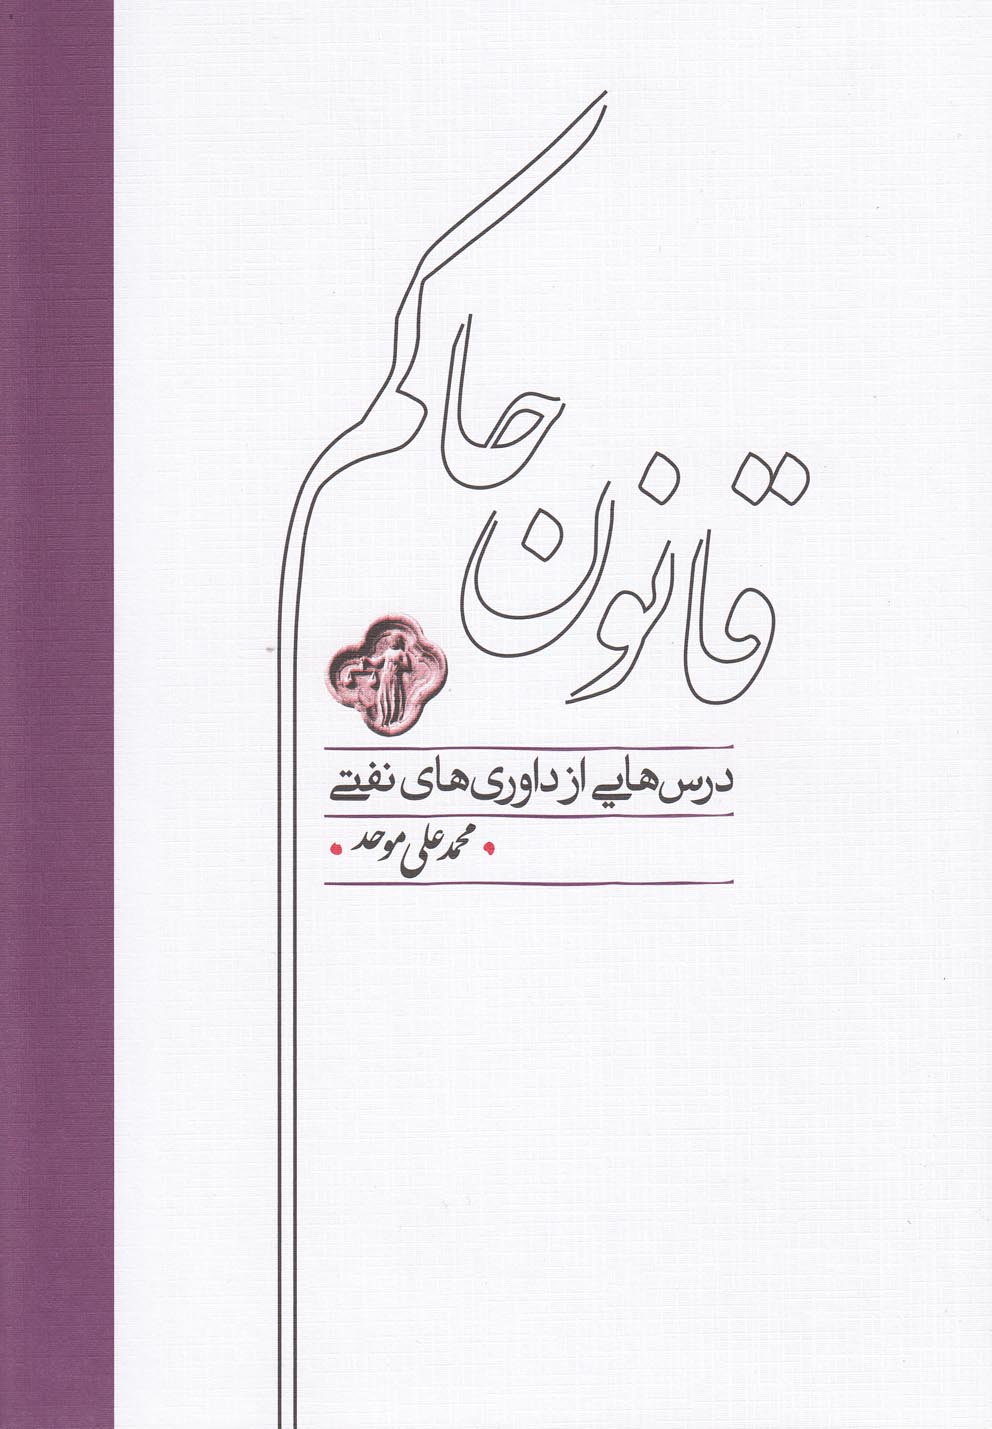 قانون حاکم
درس‌هایی از داوری‌های نفتی
محمدعلی موحد